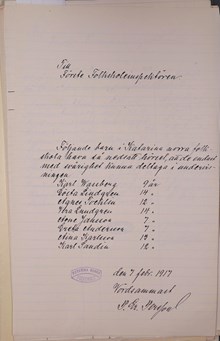 Till
Förste Folkskoleinspektören
Följande barn i Katarina norra folk-
skola hava så nedsatt hörsel, att de endast
med svårighet kunna deltaga i undervis-
ningen
Karl Wassberg 9 år
Gösta Lindgren 14 "
Agnes 12 "
Elsa Lundgren 14 "
Jansson 7 "
Greta Andersson 7 "
Anna Karlsson 12 "
Karl Sandin 12 "
den 7 febr. 1917
Vördsammast